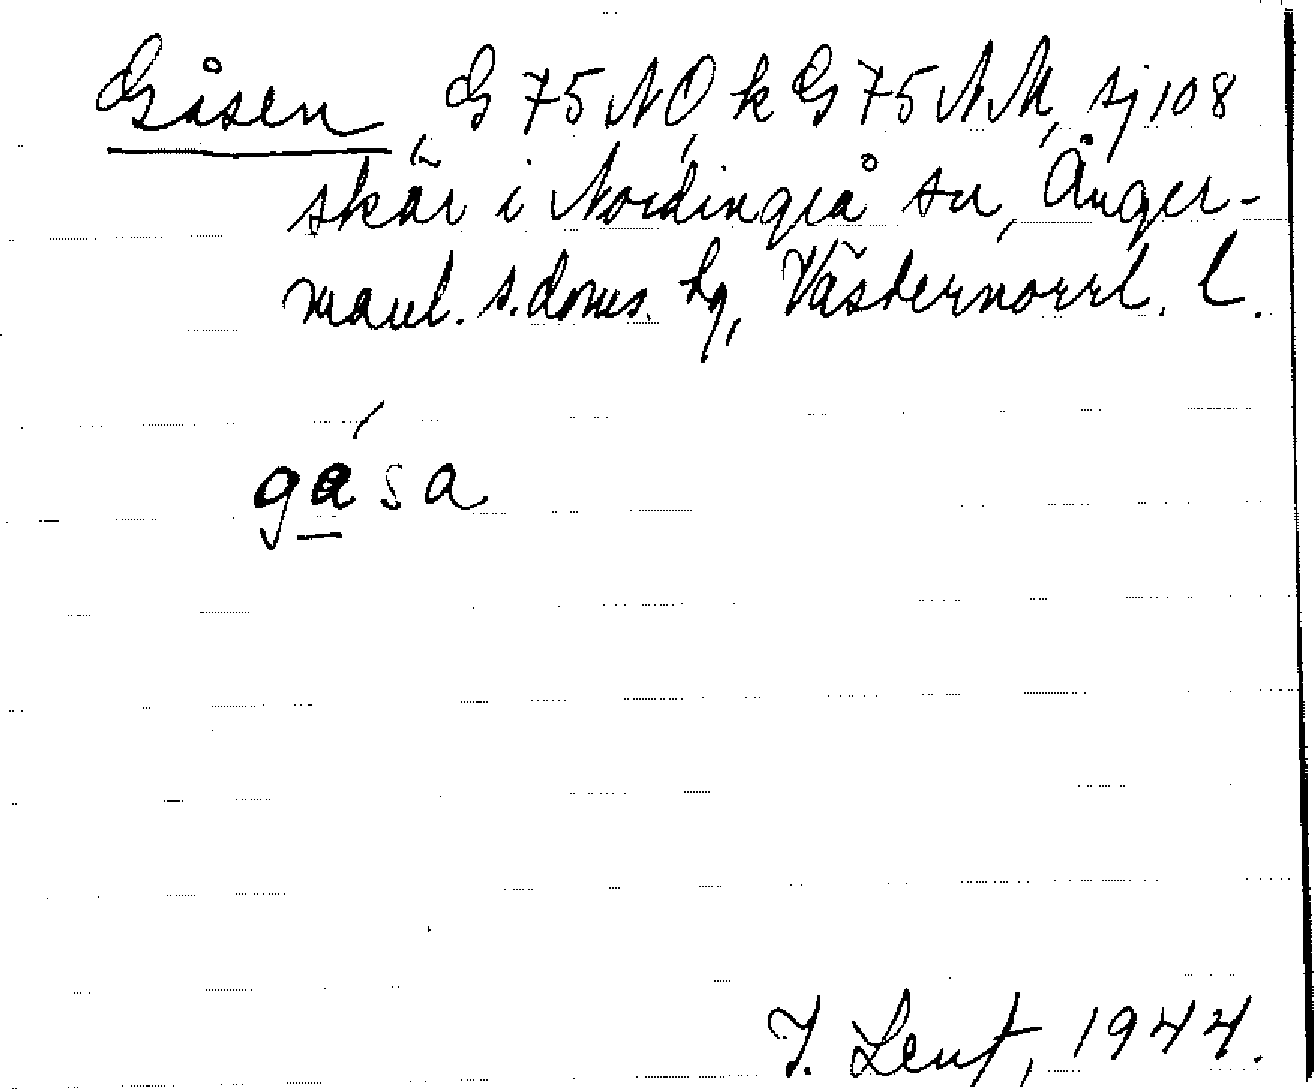 Gåsen, G 75 NO, k G 75 NM, sj 108
skär i Nordingrå sn, Ånger-
manl. s. doms. hg, Västernorrl. l.
gása
J. Lent, 1944.